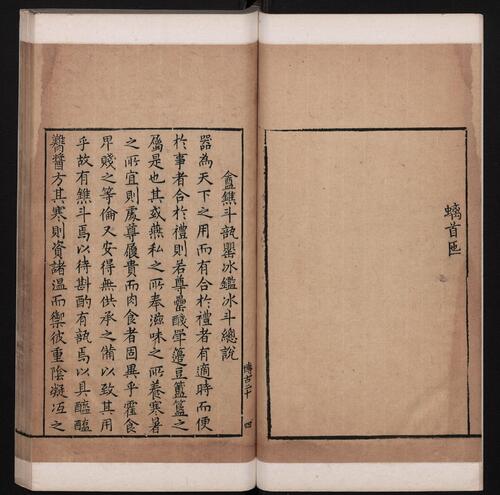 螭首匜
盦鐎斗瓿罌冰鑑冰斗總說
器為天下之用而有合於禮者有適時而便
於事者合於禮則若尊罍醆斝籩豆簠簋之
屬是也其或燕私之所奉滋味之所養寒暑
之所宜則處尊履貴而肉食者固異乎藿食
卑賤之等倫又安得無供承之備以致其用
乎故有鐎斗焉以待斟酌有瓿焉以具醯醢
臡醬方其寒則資諸溫而禦彼重陰凝冱之
博古二十 四